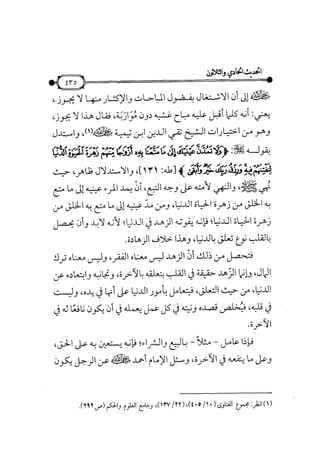 الحديث الحادي والثلاثون
٤٣٥
إلى أن الاشتغال بفضول المباحات والإكثار منها لا يجوز،
يعني: أنه كلما أقبل عليه مباح غشيه دون مُوَازَنة، فقال هذا لا يجوز،
وهو من اختيارات الشيخ تقي الدين ابن تيمية (١)، واستدل
بقوله : ﴿وَلَا تَمُدَّنَّ عَيْنَيْكَ إِلَى مَا مَتَّعْنَا بِهِ أَزْوَاجًا مِنْهُمْ زَهْرَةَ الْحَيَاةِ الدُّنْيَا
لِنَفْتِنَهُمْ فِيهِ وَرِزْقُ رَبِّكَ خَيْرٌ وَأَبْقَى﴾ [طه: ١٣١]، والاستدلال ظاهر، حيث
نُهِي والنهي لأمته على وجه التبع، أنْ يمد المرء عينيه إلى ما متع
به الخلق من زهرة الحياة الدنيا، ومن مدّ عينيه إلى ما متع به الخلق من
زهرة الحياة الدنيا؛ فإنه يفوته الزهد في الدنيا؛ لأنه لابد وأن يحصل
بالقلب نوع تعلق بالدنيا، وهذا خلاف الزهادة.
فتحصل من ذلك أنّ الزهد ليس معناه الفقر، وليس معناه ترك
المال، وإنما الزُّهد حقيقة في القلب بتعلقه بالآخرة، وتجانبه وابتعاده عن
الدنيا، من حيث التعلق، فيتعامل بأمور الدنيا على أنها في يده، وليست
في قلبه، فيُخلص قصده ونيته في كل عمل يعمله في أن يكون نافعًا له في
الآخرة.
فإذا عامل - مثلاً - بالبيع والشراء؛ فإنه يستعين به على الحق،
وعلى ما ينفعه في الآخرة، وسئل الإمام أحمد عن الرجل يكون
(١) انظر: مجموع الفتاوى (١٠/ ٤٠٥)، (٢٢/ ١٣٧)، وجامع العلوم والحكم (ص ٢٩٢).